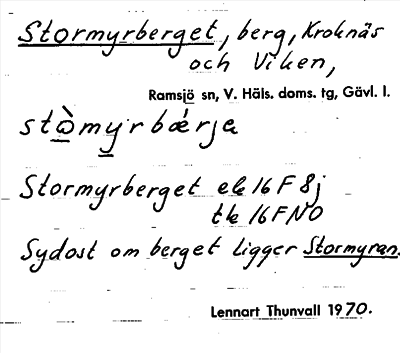 Stormyrberget, berg, Kroknäs
och Viken,
Ramsjö sn, V. Häls. doms. tg, Gävl. l.
stò̱my̱rbǽrja
Stormyrberget ek 16 F 8 j
tk 16 F NO
Sydost om berget ligger Stormyran.
Lennart Thunvall 1970.